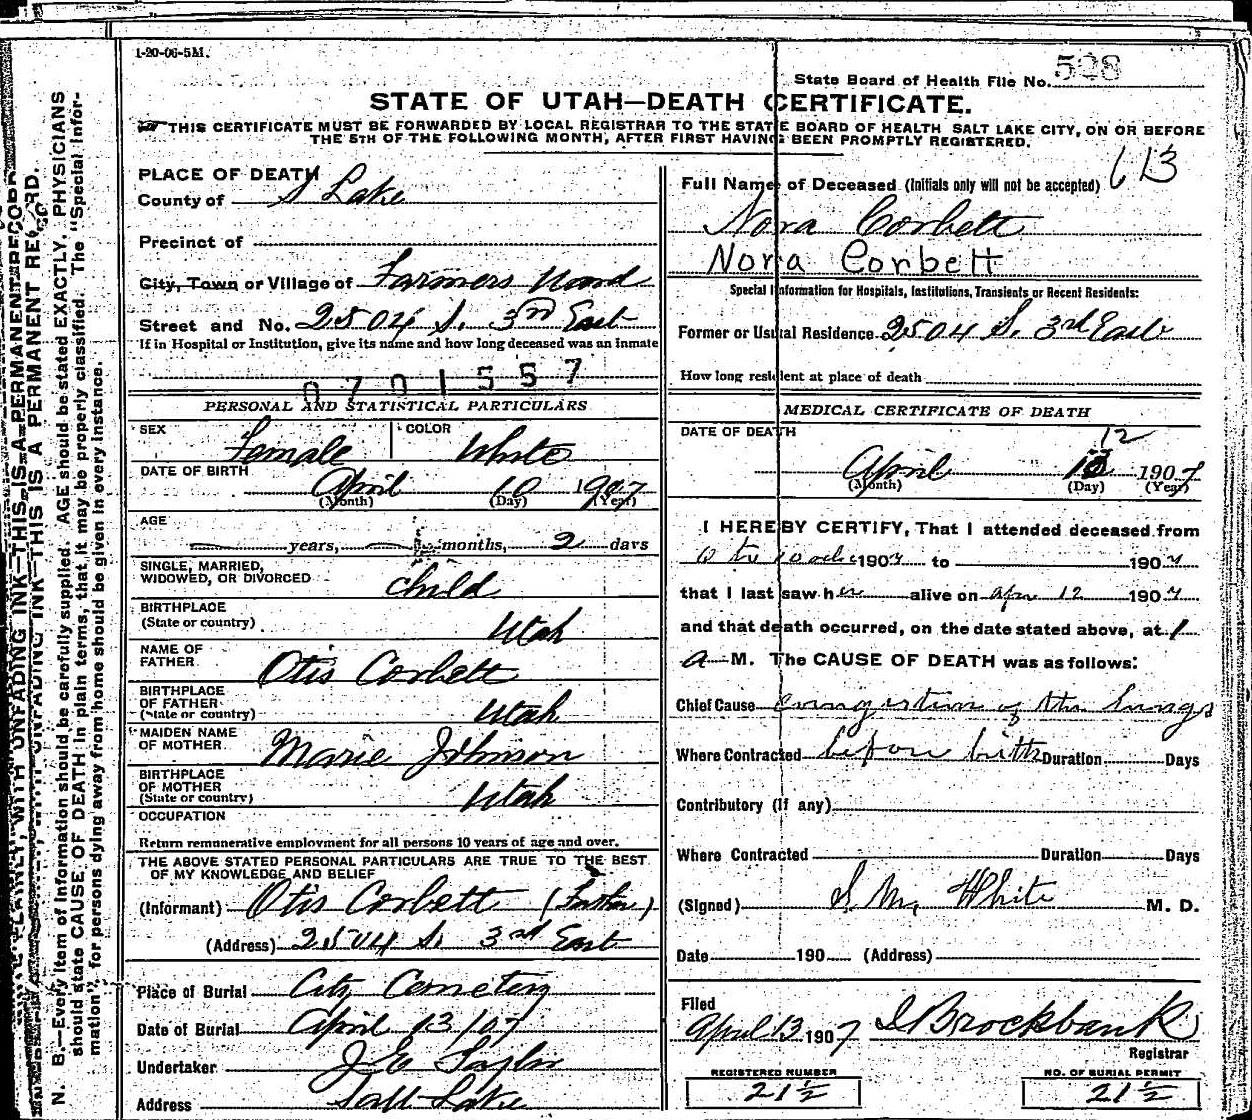 1-20-06-5M.
State Board of Health File No. 528
STATE OF UTAH—DEATH CERTIFICATE.
THIS CERTIFICATE MUST BE FORWARDED BY LOCAL REGISTRAR TO THE STATE BOARD OF HEALTH SALT LAKE CITY, ON OR BEFORE
THE 5TH OF THE FOLLOWING MONTH, AFTER FIRST HAVING BEEN PROMPTLY REGISTERED.
613
PLACE OF DEATH
County of S Lake
Precinct of
City, Town or Village of Farmers Ward
Street and No. 2504 S. 3rd East
If in Hospital or Institution, give its name and how long deceased was an inmate
0701357
PERSONAL AND STATISTICAL PARTICULARS
SEX Female COLOR White
DATE OF BIRTH
April 10 1907
(Month) (Day) (Year)
AGE
years, months, 2 days
SINGLE, MARRIED,
WIDOWED, OR DIVORCED child
BIRTHPLACE
(State or country) Utah
NAME OF
FATHER Otis Corbett
BIRTHPLACE
OF FATHER
(State or country) Utah
MAIDEN NAME
OF MOTHER Marie Johnson
BIRTHPLACE
OF MOTHER
(State or country) Utah
OCCUPATION
Return remunerative employment for all persons 10 years of age and over.
THE ABOVE STATED PERSONAL PARTICULARS ARE TRUE TO THE BEST
OF MY KNOWLEDGE AND BELIEF
(Informant) Otis Corbett (Father)
(Address) 2504 S. 3rd East
Place of Burial City Cemetery
Date of Burial April 13/07
Undertaker J E Taylor
Address Salt Lake
Full Name of Deceased (Initials only will not be accepted)
Nora Corbett
Nora Corbett
Special Information for Hospitals, Institutions, Transients or Recent Residents:
Former or Usual Residence 2504 S. 3rd East
How long resident at place of death
MEDICAL CERTIFICATE OF DEATH
DATE OF DEATH
April 12 1907
(Month) (Day) (Year)
I HEREBY CERTIFY, That I attended deceased from
1907 to 1907
that I last saw her alive on Apr 12 1907
and that death occurred, on the date stated above, at 1
a M. The CAUSE OF DEATH was as follows:
Chief Cause Congestion of the lungs
Where Contracted before birth Duration Days
Contributory (If any)
Where Contracted Duration Days
(Signed) S. M. White M. D.
Date 190 (Address)
Filed
April 13 1907 Brockbank
Registrar
REGISTERED NUMBER
21½
NO. OF BURIAL PERMIT
21½
N. B.—Every item of information should be carefully supplied. AGE should be stated EXACTLY. PHYSICIANS
should state CAUSE OF DEATH in plain terms, that it may be properly classified. The "Special Infor-
mation" for persons dying away from home should be given in every instance.
WITH UNFADING INK—THIS IS A PERMANENT RECORD.